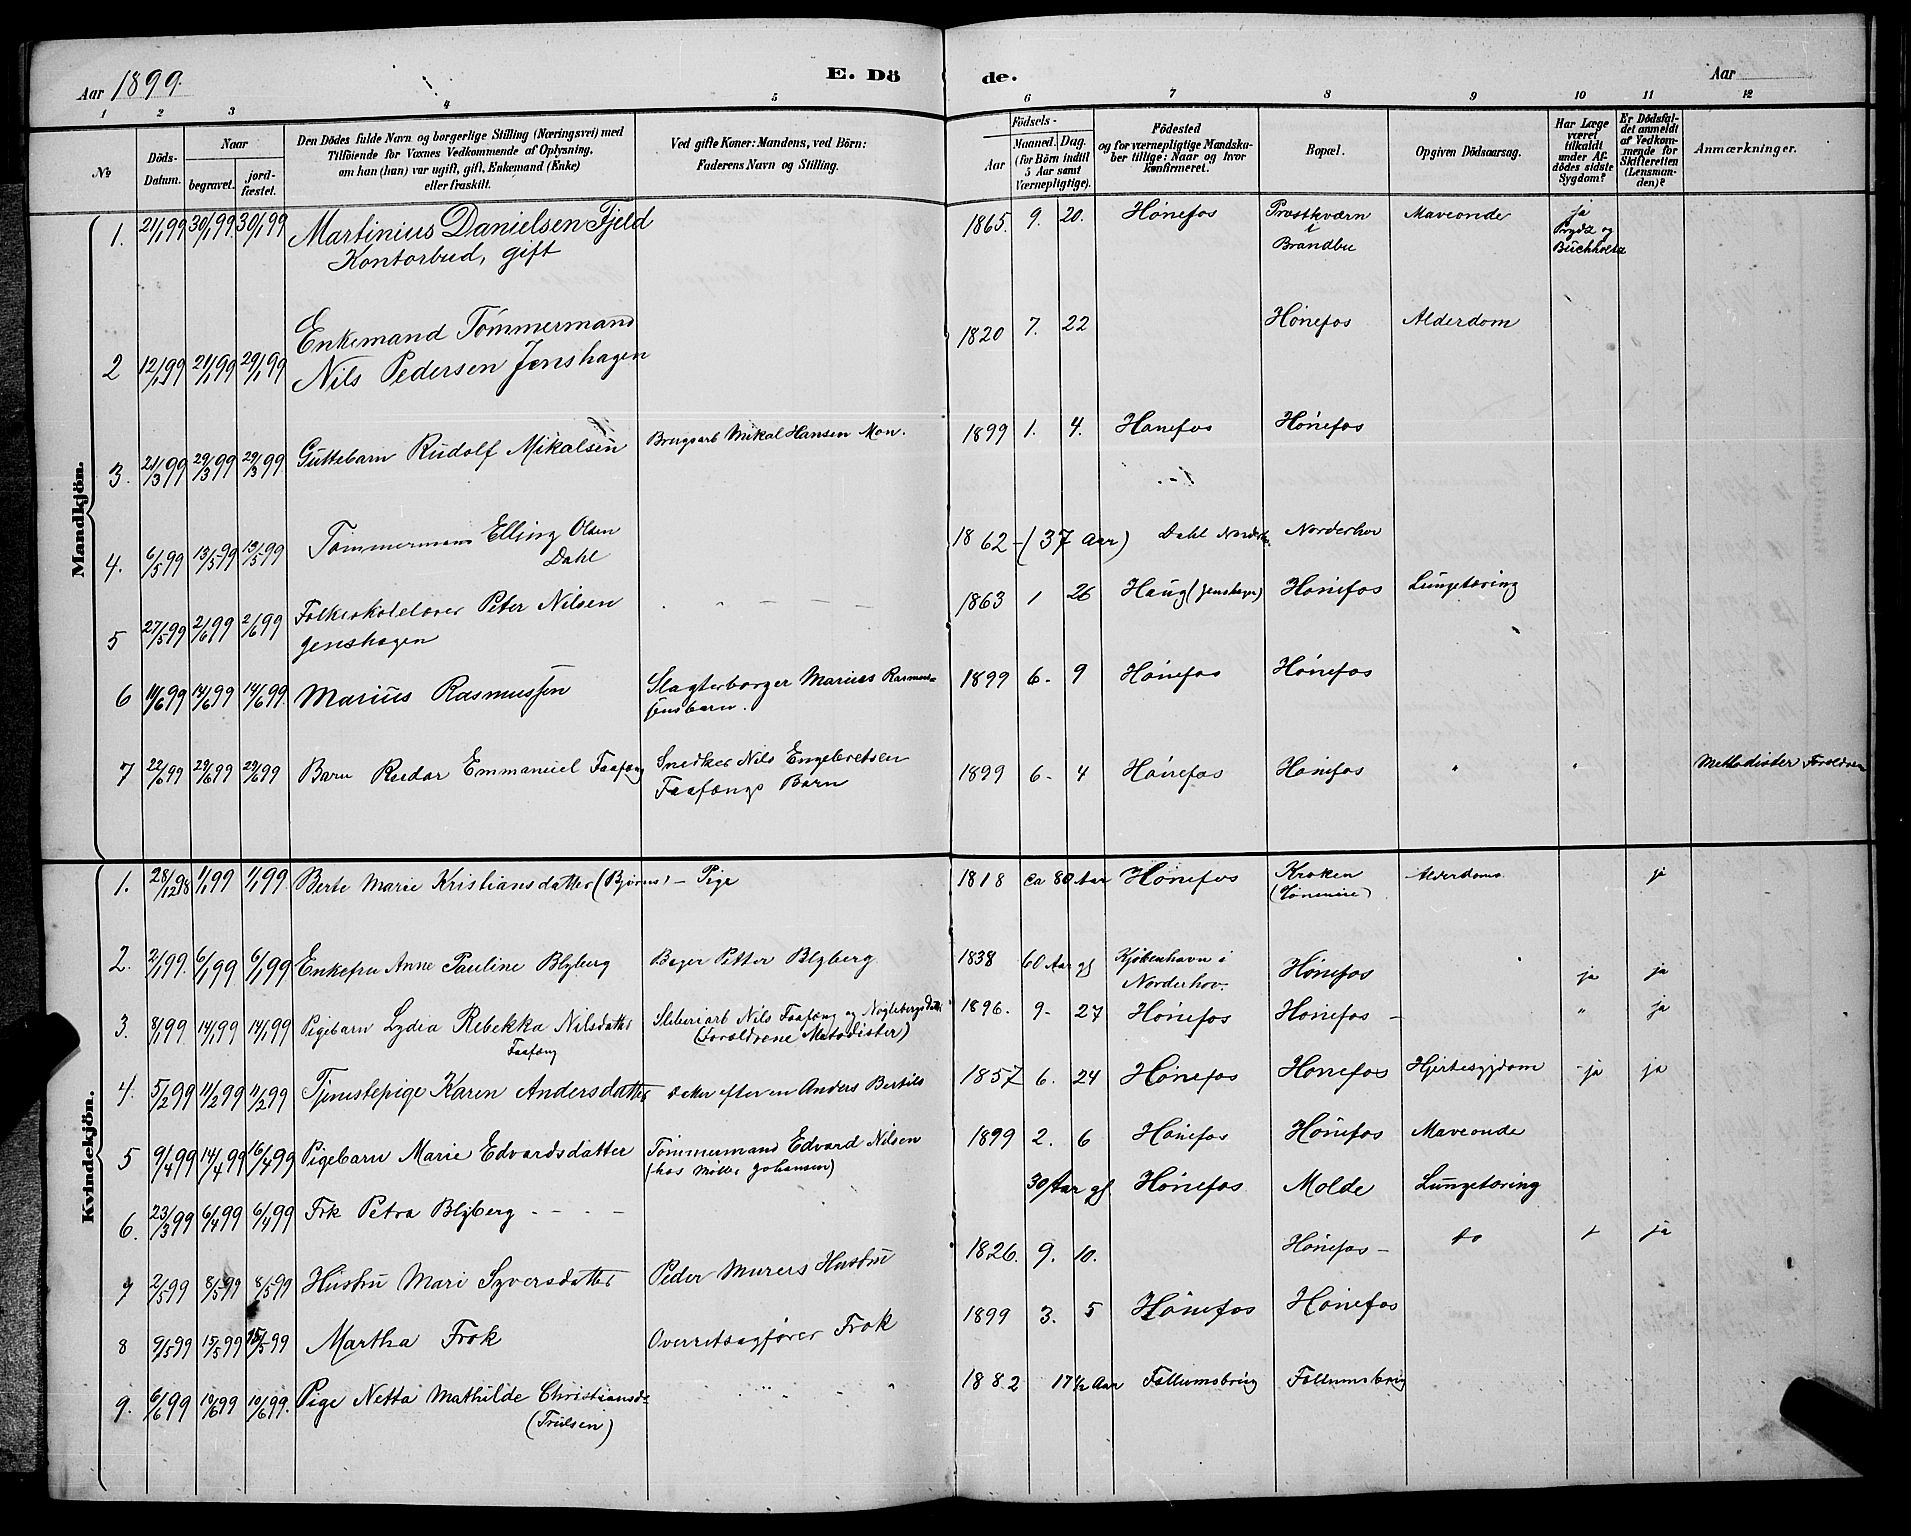 Aar 1899.
E. Dö
de.
Aar
1 2 3 4 5 6 7 8 9 10 11 12
No
Döds-
Datum.
Naar
begravet.
jord-
fæstet.
Den Dödes fulde Navn og borgerlige Stilling (Næringsvei) med
Tilföiende for Voxnes Vedkommende af Oplysning,
om han (hun) var ugift, gift, Enkemand (Enke)
eller fraskilt.
Ved gifte Koner: Mandens, ved Börn:
Faderens Navn og Stilling.
Födsels-
Aar
Maaned. Dag.
(for Börn indtil
5 Aar samt
Værnepligtige).
Födested
og for værnepligtige Mandska-
ber tillige: Naar og hvor
konfirmeret.
Bopæl.
Opgiven Dödsaarsag.
Har Læge
været
tilkaldt
under Af-
dødes sidste
Sygdom?
Er Dödsfal-
det anmeldt
af Vedkom-
mende for
Skifteretten
(Lensman-
den)?
Anmærkninger.
Mandkjön.
1. 21/1 99 30/1 99 30/1 99 Martinius Danielsen Fjeld 1865. 9. 20. Hønefos Præstkværn Maveonde ja
Kontorbud, gift i Brandbu Prydz og Buchholtz
Enkemand Tømmermand 1820 7. 22 Hønefos Alderdom
2 12/1 99 21/1 99 29/1 99 Nils Pedersen Jenshagen
3. 21/3 99 29/3 99 29/3 99 Guttebarn Rudolf Mikalsen Brugsarb Mikal Hansen Mon. 1899 1. 4. Hønefos Hønefos
4. 6/5 99 13/5 99 13/5 99 Tømmermand Elling Olsen 1862 - (37 Aar) Dahl Norderh. Norderhov
Dahl
5 27/5 99 2/6 99 2/6 99 Folkeskolelærer Peter Nilsen 1863 1 26 Haug (Jenshagen) Hønefos Lungetæring
Jenshagen
6 11/6 99 14/6 99 14/6 99. Marius Rasmussen Slagterborger Marius Rasmus- 1899 6. 9 Hønefos Hønefos
sens barn.
7 22/6 99 29/6 99 29/6 99 Barn Reidar Emmanuel Faafæng Snedker Nils Engebretsen 1899 6. 4 Hønefos Hønefos " " Methodister Forældrene
Faafængs Barn
Kvindekjön.
1. 28/12 98 1/1 99 1/1 99 Berte Marie Kristiansdatter (Bjørns) - Pige 1818 ca 80 Aar Hønefos Kroken Alderdoms ja
2. 2/1 99. 6/1 99 6/1 99 Enkefru Anne Pauline Blyberg Bager Petter Blyberg 1838 60 Aar gl Kjøbenhavn i Hønefos ja ja
Norderhov.
3. 8/1 99 14/1 99 14/1 99 Pigebarn Lydia Rebekka Nilsdatter Sliberiarb Nils Faafæng og 1896. 9. 27 Hønefos Hønefos - " ja
Faafæng (Forældrene Metodister)
4. 5/2 99 11/2 99 11/2 99 Tjenestepige Karen Andersdatter Datter efter en Anders Bertils 1857 6. 24 Hønefos Hønefos Hjertesygdom ja ja
5 9/4 99 14/4 99 16/4 99 Pigebarn Marie Edvardsdatter Tømmermand Edvard Nilsen 1899 2. 6 Hønefos Hønefos Maveonde
(hos Johansen)
6. 23/3 99 6/4 99 6/4 99 Frk Petra Blyberg - - - - 30 Aar gl Hønefos Molde Lungetæring
7 2/5 99 8/5 99 8/5 99 Hustru Mari Syversdatter Peder Murers Hustru 1826. 9. 10. Hønefos - do + ja
8 9/5 99 15/5 99 15/5 99 Martha Frok Overretsagfører Frok 1899 3. 5 Hønefos Hønefos
9. 6/6 99 10/6 99 10/6 99. Pige Netta Mathilde Christiansd- 1882 17 1/2 Aar Follumsbrug Follumsbrug
(Trulsen)